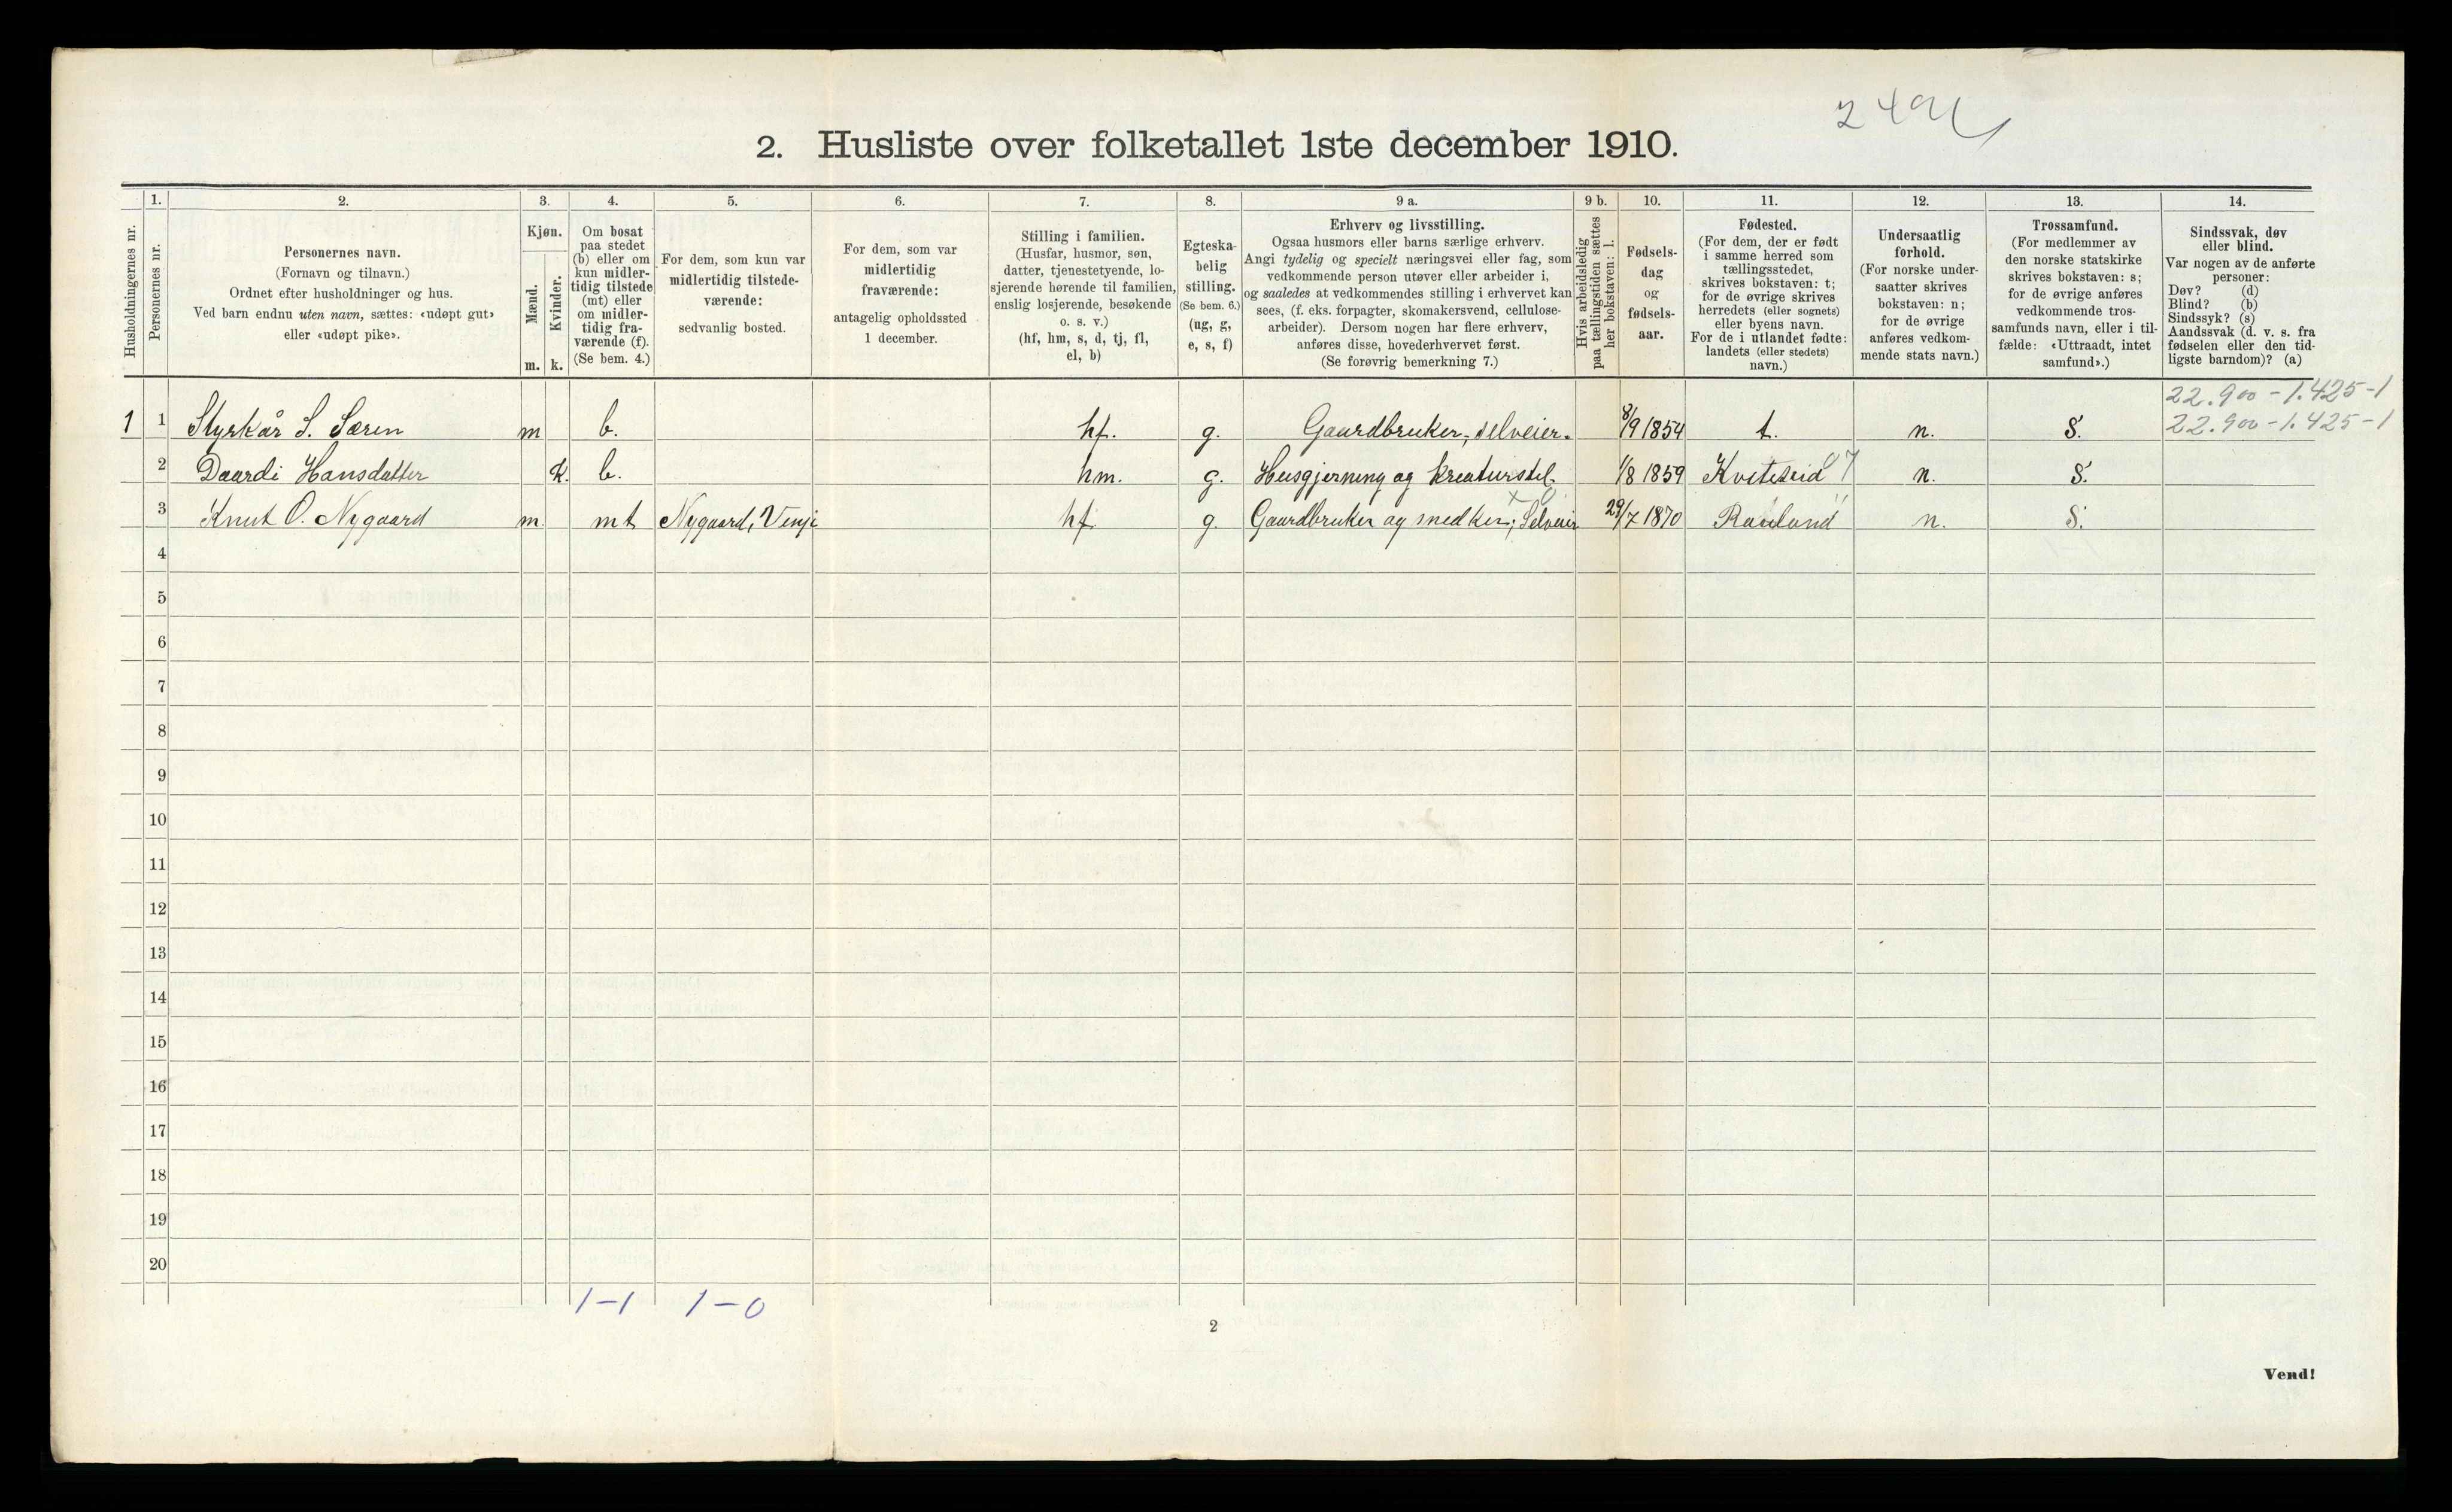 2494
2. Husliste over folketallet 1ste december 1910.
Husholdningernes nr.
1.
Personernes nr.
2.
Personernes navn.
(Fornavn og tilnavn.)
Ordnet efter husholdninger og hus.
Ved barn endnu uten navn, sættes: «udøpt gut»
eller «udøpt pike».
3.
Kjøn.
Mænd.
Kvinder.
m. k.
4.
Om bosat
paa stedet
(b) eller om
kun midler-
tidig tilstede
(mt) eller
om midler-
tidig fra-
værende (f).
(Se bem. 4.)
5.
For dem, som kun var
midlertidig tilstede-
værende:
sedvanlig bosted.
6.
For dem, som var
midlertidig
fraværende:
antagelig opholdssted
1 december.
7.
Stilling i familien.
(Husfar, husmor, søn,
datter, tjenestetyende, lo-
sjerende hørende til familien,
enslig losjerende, besøkende
o. s. v.)
(hf, hm, s, d, tj, fl,
el, b)
8.
Egteska-
belig
stilling.
(Se bem. 6.)
(ug, g,
e, s, f)
9 a.
Erhverv og livsstilling.
Ogsaa husmors eller barns særlige erhverv.
Angi tydelig og specielt næringsvei eller fag, som
vedkommende person utøver eller arbeider i,
og saaledes at vedkommendes stilling i erhvervet kan
sees, (f. eks. forpagter, skomakersvend, cellulose-
arbeider). Dersom nogen har flere erhverv,
anføres disse, hovederhvervet først.
(Se forøvrig bemerkning 7.)
9 b.
Hvis arbeidsledig
paa tællingstiden sættes
her bokstaven: l.
10.
Fødsels-
dag
og
fødsels-
aar.
11.
Fødested.
(For dem, der er født
i samme herred som
tællingsstedet,
skrives bokstaven: t;
for de øvrige skrives
herredets (eller sognets)
eller byens navn.
For de i utlandet fødte:
landets (eller stedets)
navn.)
12.
Undersaatlig
forhold.
(For norske under-
saatter skrives
bokstaven: n;
for de øvrige
anføres vedkom-
mende stats navn.)
13.
Trossamfund.
(For medlemmer av
den norske statskirke
skrives bokstaven: s;
for de øvrige anføres
vedkommende tros-
samfunds navn, eller i til-
fælde: «Uttraadt, intet
samfund».)
14.
Sindssvak, døv
eller blind.
Var nogen av de anførte
personer:
Døv? (d)
Blind? (b)
Sindssyk? (s)
Aandssvak (d. v. s. fra
fødselen eller den tid-
ligste barndom)? (a)
22.900-1.425-1
1 1 Styrkår S. Særen m b. hf. g. Gaardbruker, selveier. 8/9 1854 t. n. S. 22.900-1.425-1
2 Daardi Hansdatter k. b. hm. g. Husgjerning og kreaturstel. 1/8 1859 Kviteseid n. S.
3 Knut O. Nygaard m. mt Nygaard, Vinje hf g. Gaardbruker og snedker, Selveier 29/7 1870 Rauland n. S.
4
5
6
7
8
9
10
11
12
13
14
15
16
17
18
19
20
1-1 1-0
2
Vend!